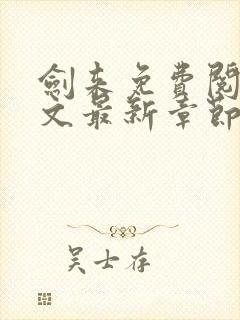 劍来免費閱
文最新章節
吴士存